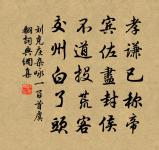 孝谦已称帝
宾佐尽封侯
不道投荒客
交州白了头
刘克庄杂咏一百首虞
翻词典网喜